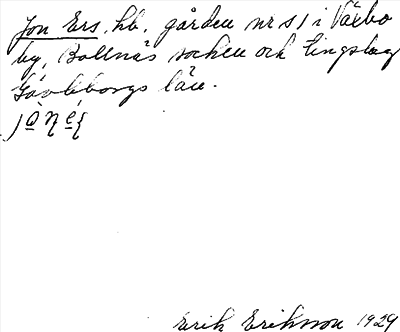 Jon Ers, hb. gården nr 51 i Växbo
by, Bollnäs socken och tingslag
Gävleborgs län.
Erik Eriksson 1929